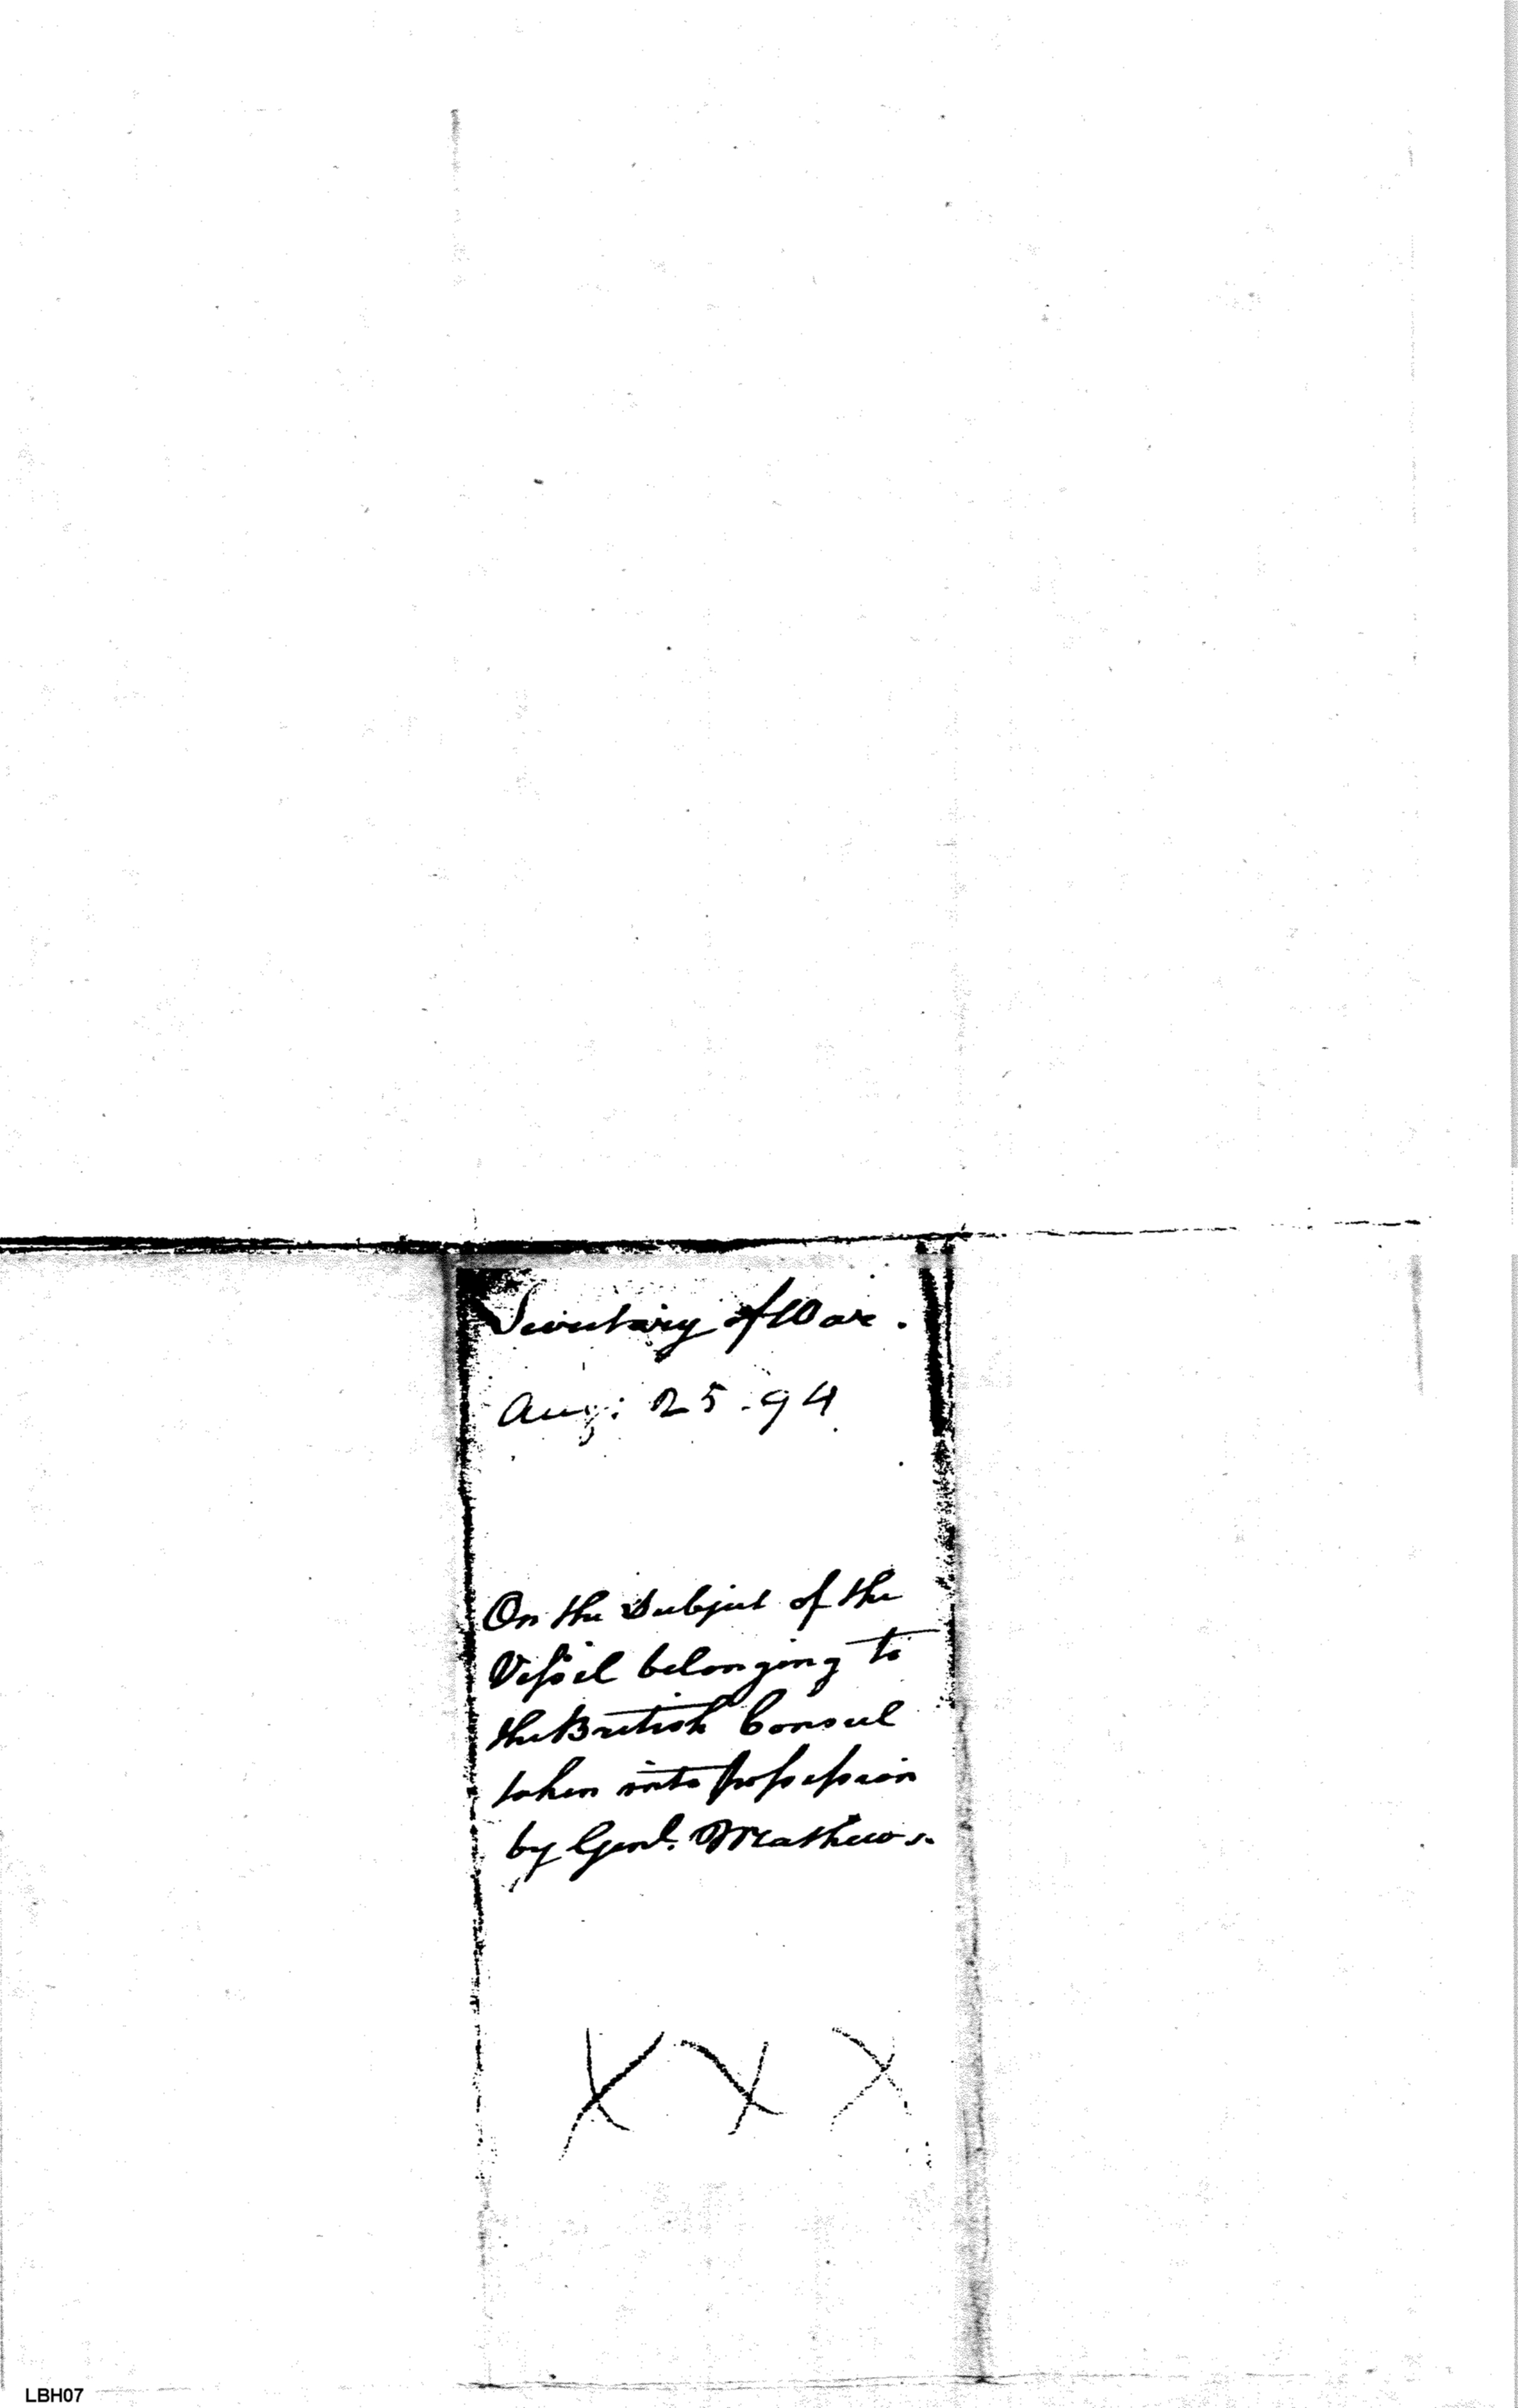 Secretary of War.
Aug: 25. 94
On the Subject of the
Vessel belonging to
the British Consul
taken into possession
by Genl. Mathews.
X X X
LBH07